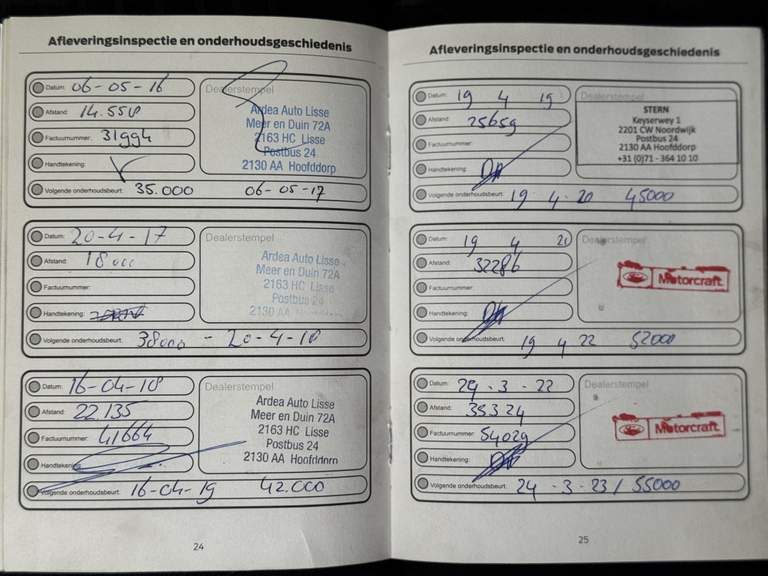 Afleveringsinspectie en onderhoudsgeschiedenis
Datum: 06-05-16
Dealerstempel
Afstand: 14.558
Factuurnummer: 31994
Handtekening:
Ardea Auto Lisse
Meer en Duin 72A
2163 HC Lisse
Postbus 24
2130 AA Hoofddorp
Volgende onderhoudsbeurt: 35.000 06-05-17
Datum: 20-4-17
Dealerstempel
Afstand: 18000
Factuurnummer:
Handtekening:
Ardea Auto Lisse
Meer en Duin 72A
2163 HC Lisse
Postbus 24
2130 AA
Volgende onderhoudsbeurt: 38000 - 20-4-18
Datum: 16-04-18
Dealerstempel
Afstand: 22135
Factuurnummer: 41664
Handtekening:
Ardea Auto Lisse
Meer en Duin 72A
2163 HC Lisse
Postbus 24
2130 AA Hoofddorp
Volgende onderhoudsbeurt: 16-04-19 42.000
24
Afleveringsinspectie en onderhoudsgeschiedenis
Datum: 19 4 19
Dealerstempel
Afstand: 25659
Factuurnummer:
Handtekening:
STERN
Keyserweg 1
2201 CW Noordwijk
Postbus 24
2130 AA Hoofddorp
+31 (0)71 - 364 10 10
Volgende onderhoudsbeurt: 19 4-20 45000
Datum: 19 4 21
Dealerstempel
Afstand: 32286
Factuurnummer:
Handtekening:
Ford Motorcraft
Volgende onderhoudsbeurt: 19 4 22 52000
Datum: 24-3-22
Dealerstempel
Afstand: 35324
Factuurnummer: 54029
Handtekening:
Ford Motorcraft
Volgende onderhoudsbeurt: 24-3-23/55000
25